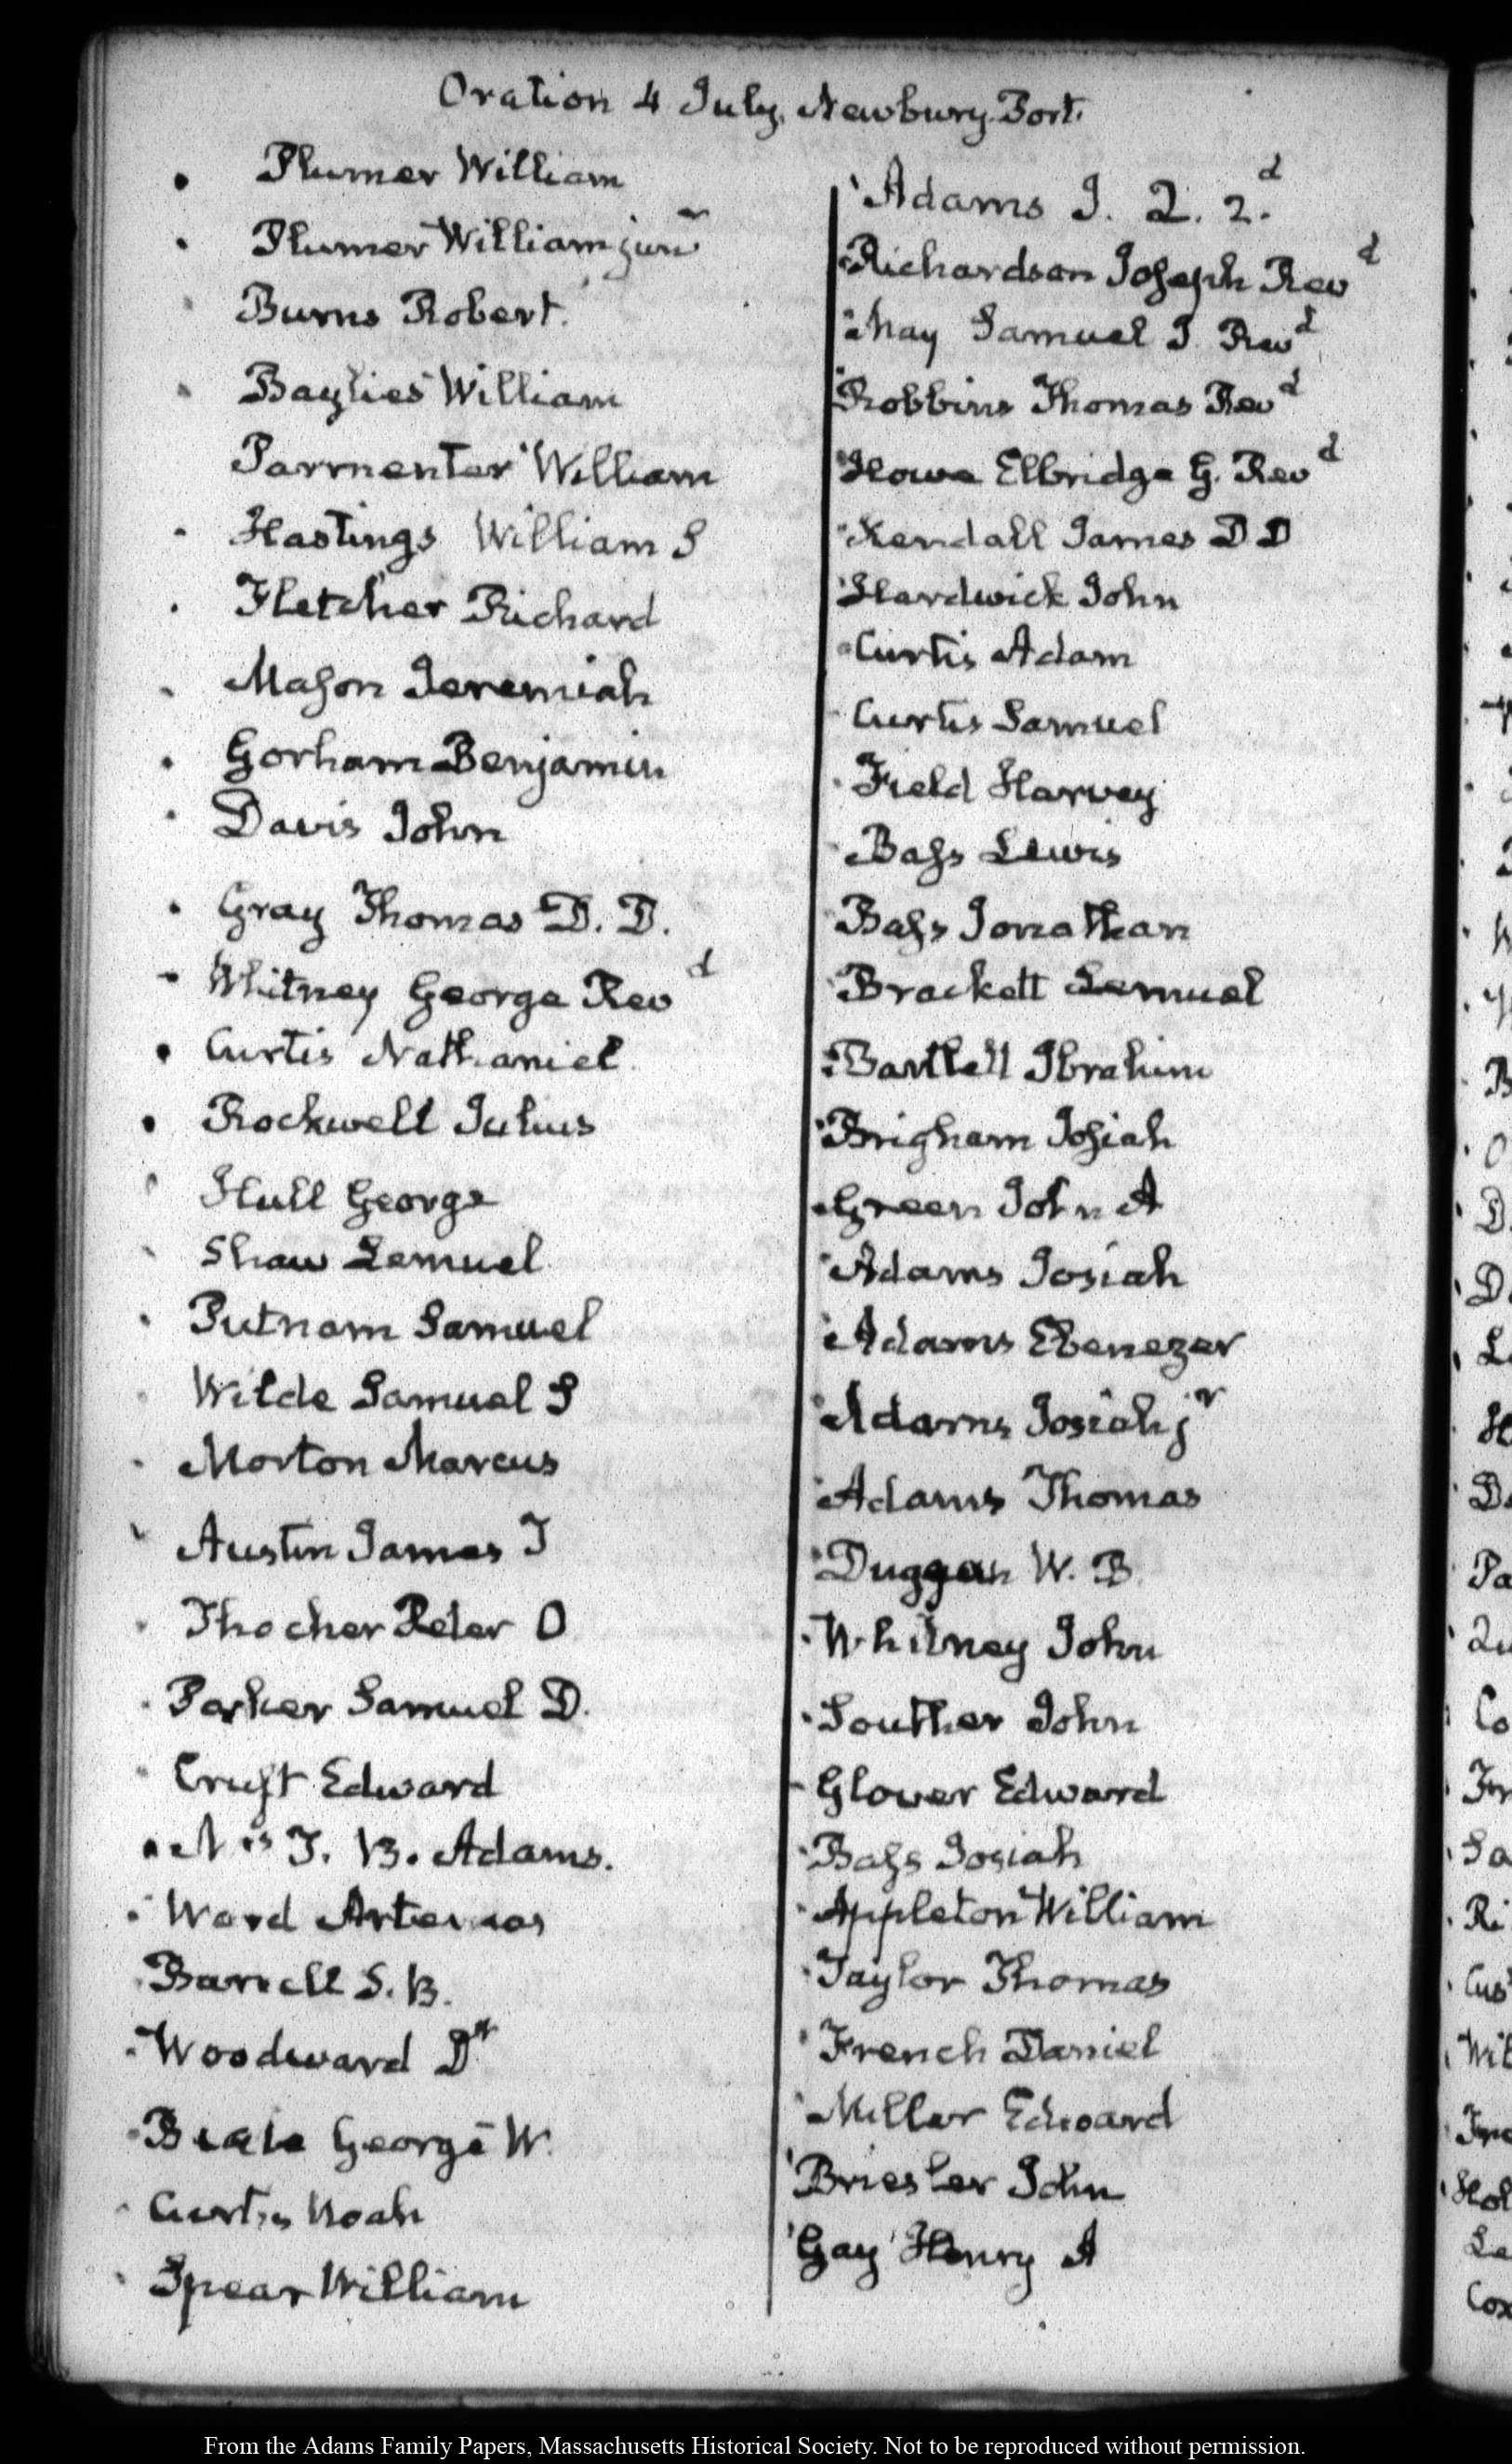 Oration 4 July, Newbury Port.
Plumer William
Plumer William junr
Burns Robert.
Baylies William
Parmenter William
Hastings William S
Fletcher Richard
Mason Jeremiah
Gorham Benjamin
Davis John
Gray Thomas D. D.
Whitney George Revd
Curtis Nathaniel
Rockwell Julius
Hull George
Shaw Lemuel
Putnam Samuel
Wilde Samuel S
Morton Marcus
Austin James T
Thacher Peter O
Parker Samuel D.
Cruft Edward
Mrs T. B. Adams.
Ward Artemas
Barrell S. B.
Woodward Dr
Beale George W.
Curtis Noah
Spear William
Adams J. Q. 2.d
Richardson Joseph Revd
May Samuel J. Revd
Robbins Thomas Revd
Howe Elbridge G. Revd
Kendall James D D
Hardwick John
Curtis Adam
Curtis Samuel
Field Harvey
Bass Lewis
Bass Jonathan
Brackett Lemuel
Bartlett Ibrahim
Brigham Josiah
Green John A
Adams Josiah
Adams Ebenezer
Adams Josiah jr
Adams Thomas
Duggan W. B.
Whitney John
Souther John
Glover Edward
Bass Josiah
Appleton William
Taylor Thomas
French Daniel
Miller Edward
Briesler John
Gay Henry A
From the Adams Family Papers, Massachusetts Historical Society. Not to be reproduced without permission.